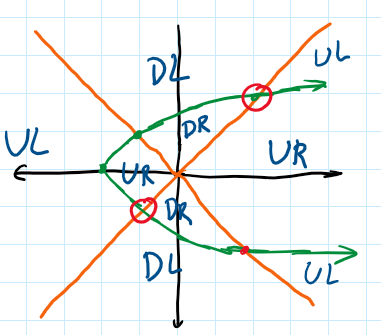 UL
DL
DR
UL
UR
UR
DR
DL
UL